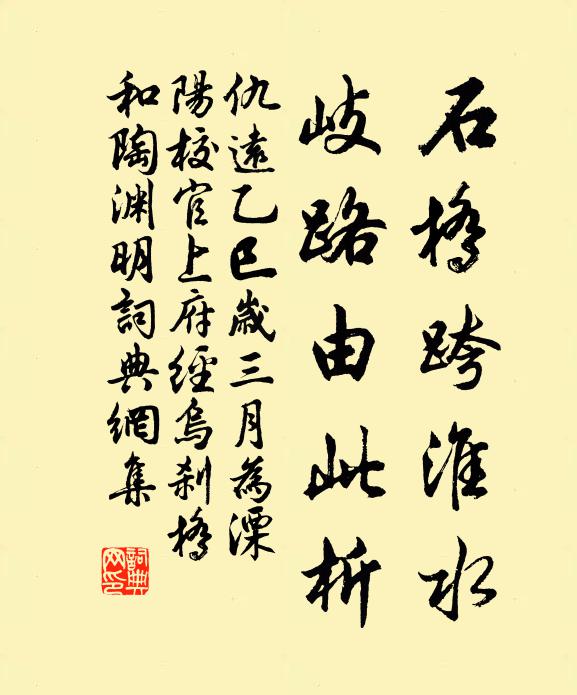 石橋跨淮水
岐路由此析
仇遠乙巳歲三月為溧
陽校官上府經烏刹橋
和陶淵明詞典網集
詞典网印